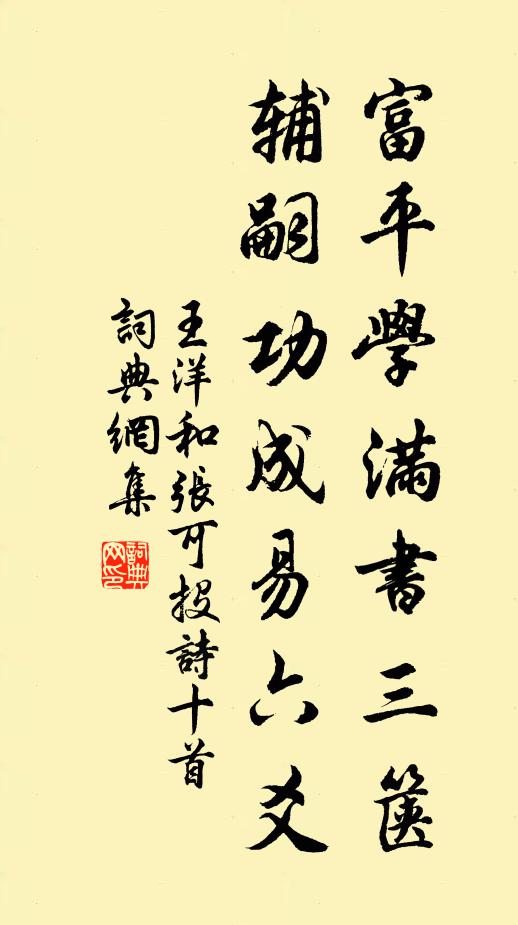 富平學滿書三篋
辅嗣功成易六爻
王洋和張可投詩十首
詞典網集
詞典网印